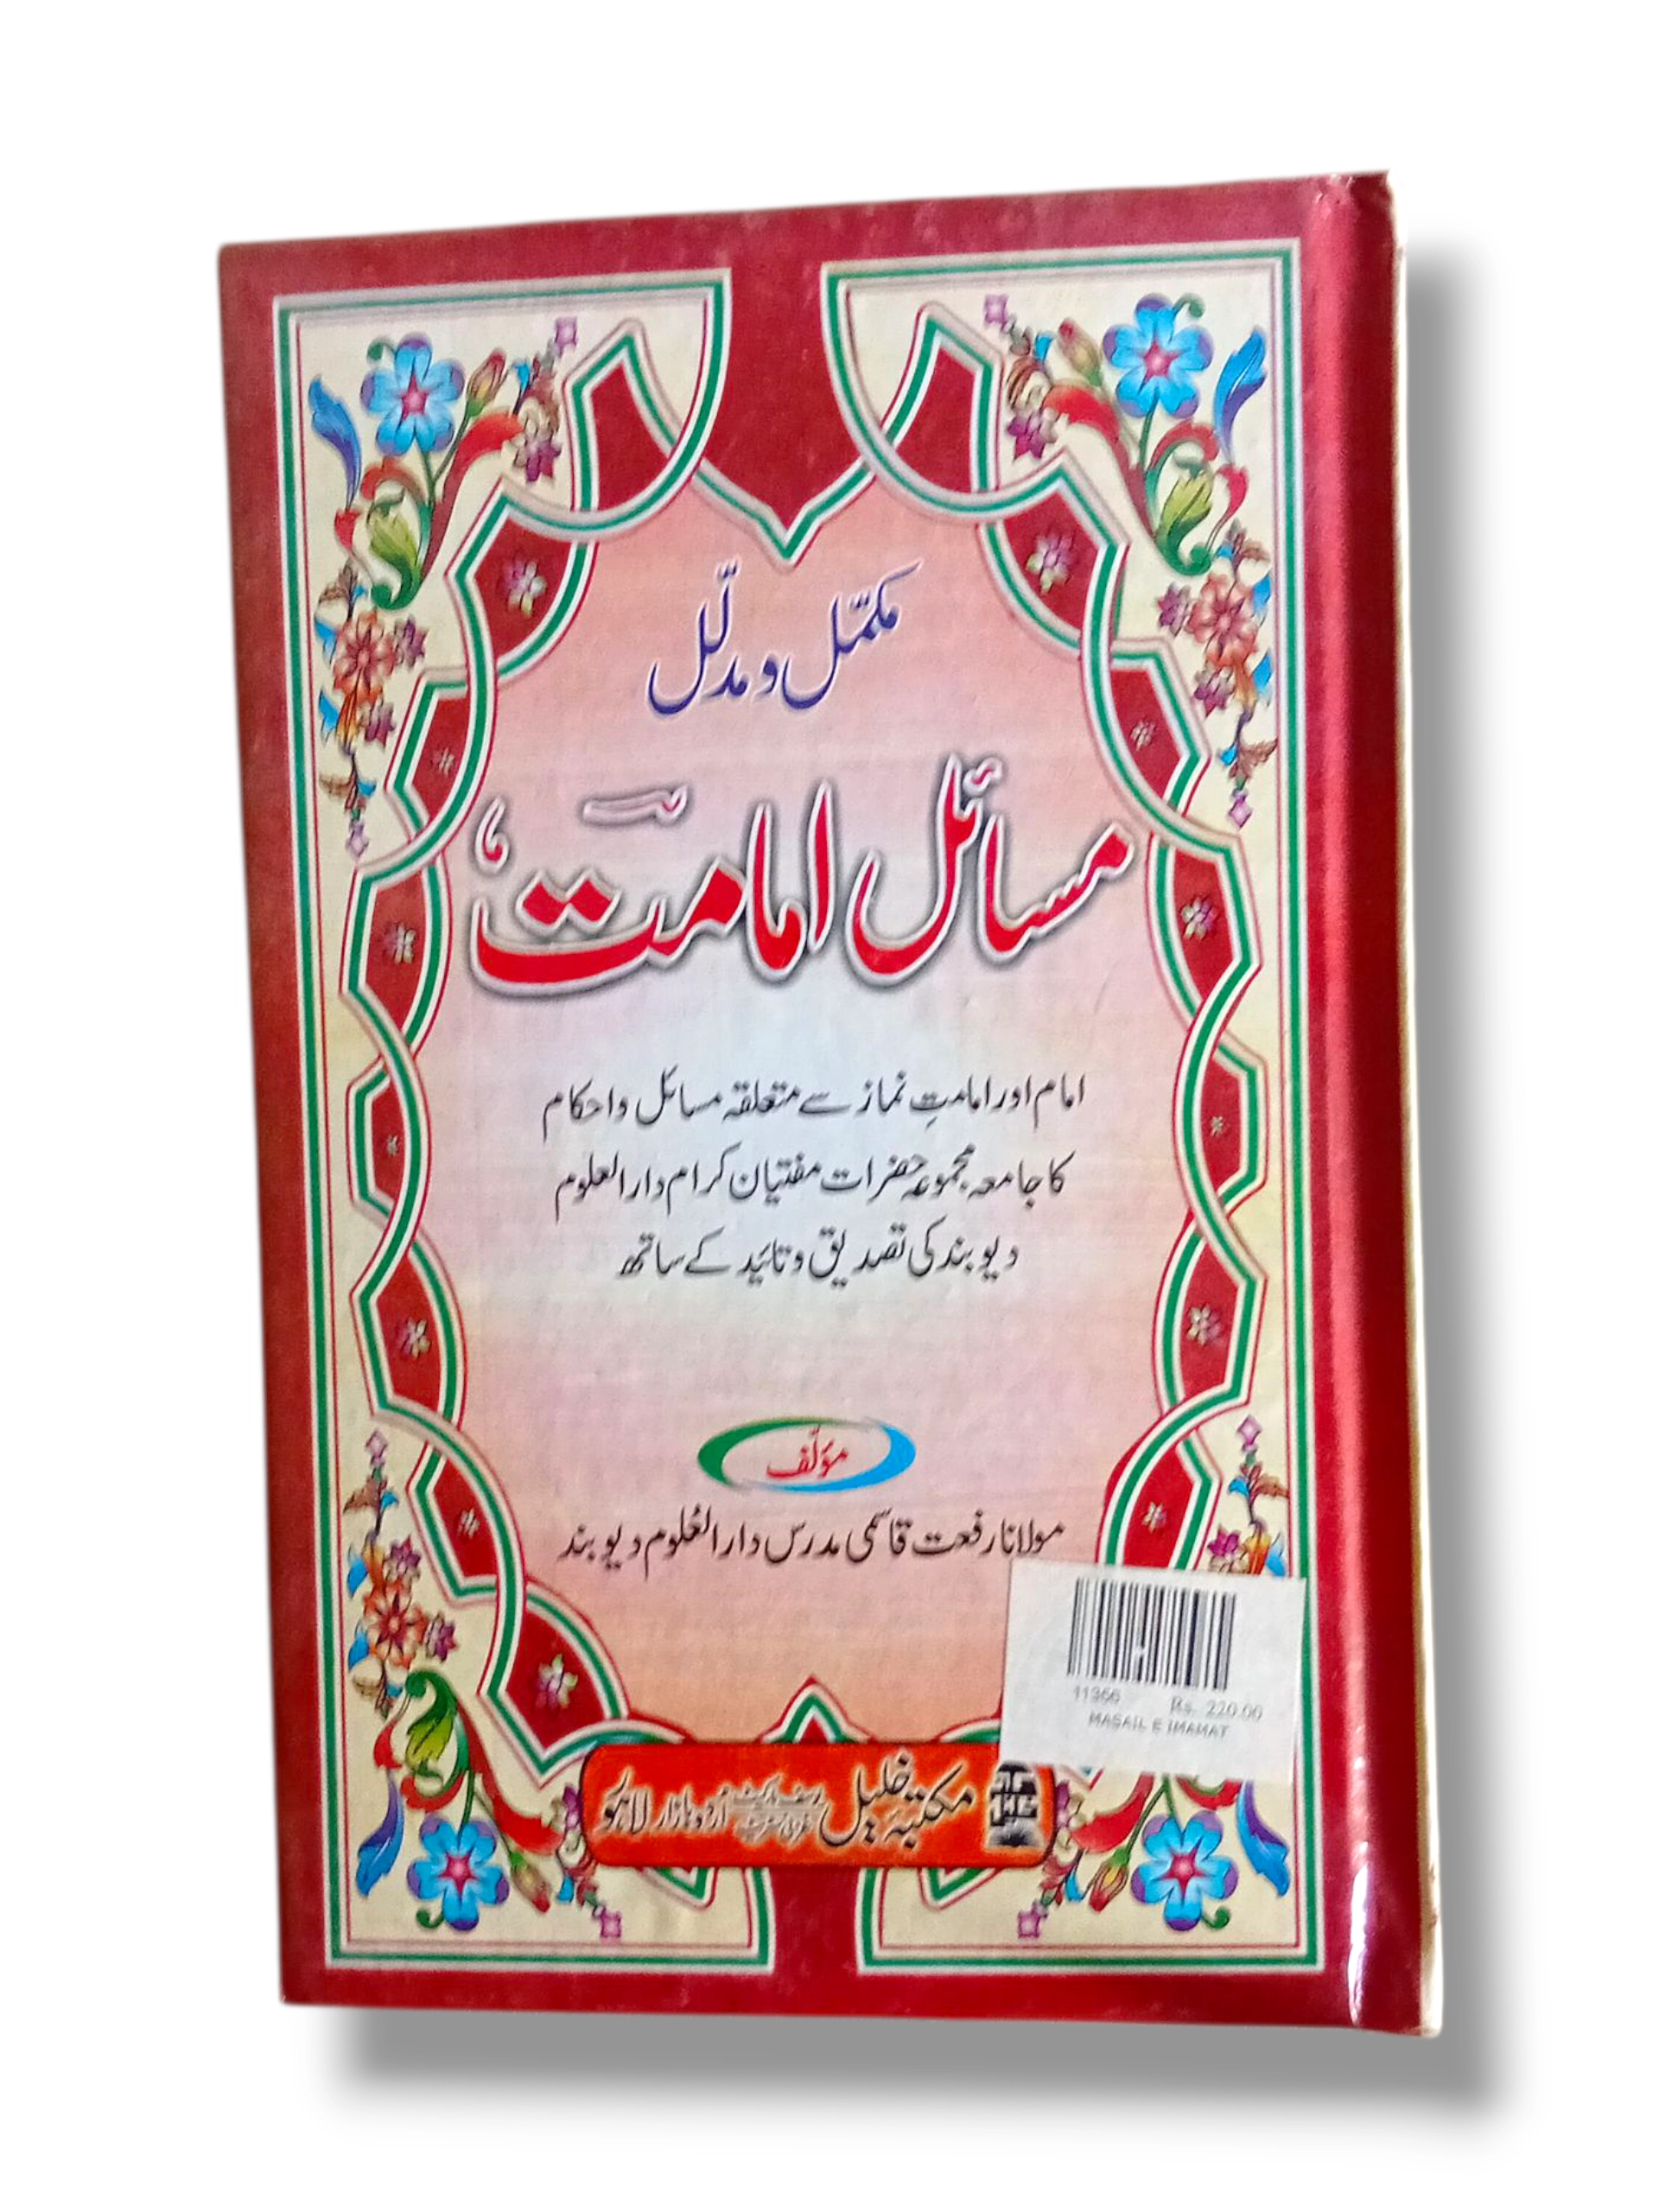 مکمّل و مدلّل
مسائل امامت
امام اور امامتِ نماز سے متعلقہ مسائل و احکام
کا جامعہ مجموعہ حضرات مفتیان کرام دارالعلوم
دیوبند کی تصدیق و تائید کے ساتھ
مؤلّف
مولانا رفعت قاسمی مدرس دارالعُلوم دیوبند
11366 Rs. 220.00
MASAIL E IMAMAT
مکتبہ خلیل یوسف مارکیٹ غزنی سٹریٹ اُردو بازار لاہور